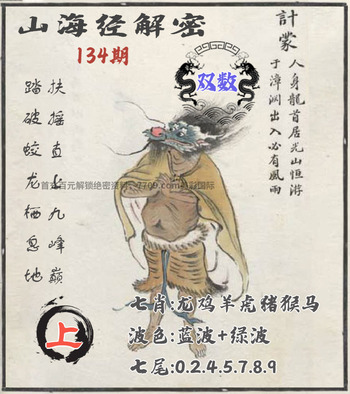 山海经解密
134期
双数
計蒙
人身龍首居光山恒游
于漳渊出入必有風雨
扶摇直上九峰巅
踏破蛟龙栖息地
7769.com
上
七肖:龙鸡羊虎猪猴马
波色:蓝波+绿波
七尾:0.2.4.5.7.8.9